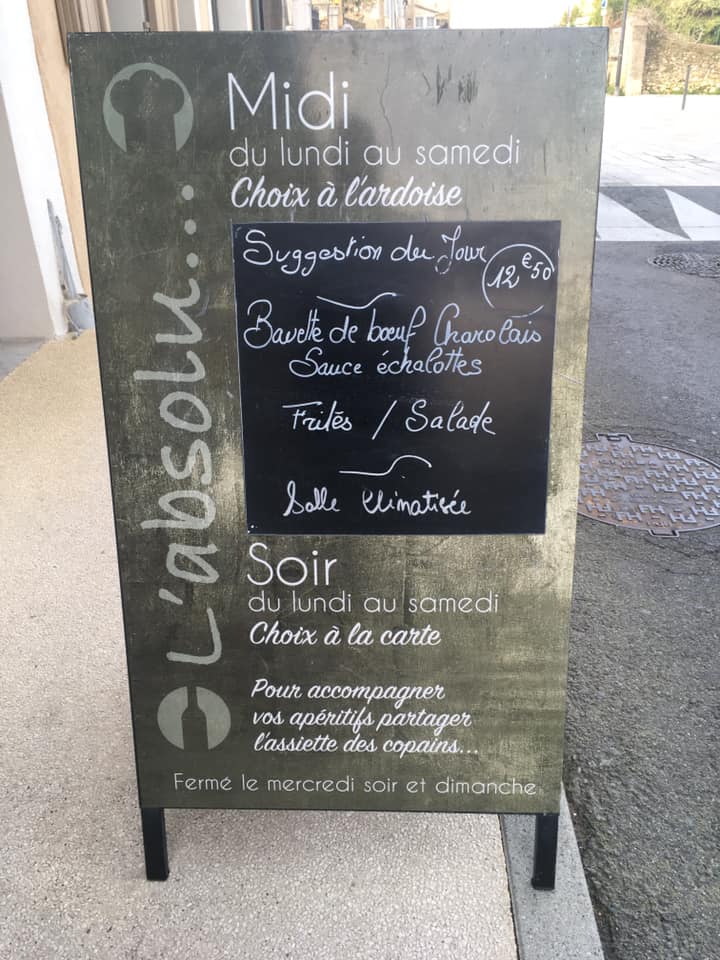 L'absolu...
Midi
du lundi au samedi
Choix à l'ardoise
Suggestion du Jour
12€50
Bavette de bœuf Charolais
Sauce échalottes
Frites / Salade
Salle Climatisée
Soir
du lundi au samedi
Choix à la carte
Pour accompagner
vos apéritifs partager
l'assiette des copains...
Fermé le mercredi soir et dimanche